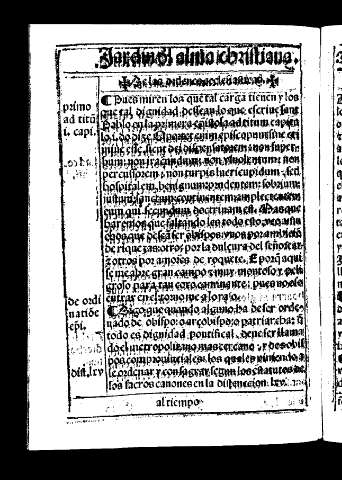 Jardin del alma christiana.
✠ De las ordenes ecclesiasticas. ✠
primo
ad titũ
i. capi.
¶ Pues miren los que tal carga tienen y los
que tal dignidad dessean lo que escriue sant
Pablo en la primera epistola ad titum capitu
lo. i. do dize. Oportet enim episcopum sine cri
mine esse, sicut dei dispensatorem: non super
bum: non iracundum: non vinolentum: non
percussorem: non turpis lucri cupidum: sed
hospitalem, benignum: prudentem: sobrium:
iustum: sanctum: continentem: amplectentem
eum qui secundum doctrinam est. Mas que
haremos que faltando les todo esto, veo mu
chos que dessea ser obispos: vnos por ambició
de riquezas: otros por la dulçura del señorear
otros por amores de roquete. E porq̃ aqui
se me abre gran campo y muy montoso y peli
groso para tan corto caminante: pues no oso
entrar en el, tomo me a lo raso.
de ordi
natiõe
epi.
¶ Digo que quando alguno ha de ser orde
nado de obispo: o arçobispo: o patriarcha: q̃
todo es dignidad pontifical, deue ser llama
do el metropolitano mas cercano, y dos obis
pos comprouinciales: los quales viniendo a
dist. lxv
le ordenar y consagrar segun los estatutos de
los sacros canones en la distinction. lxv.
al tiempo